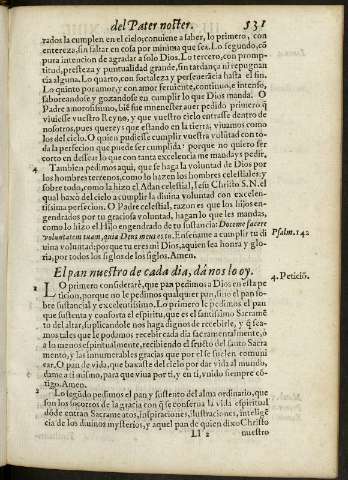 del Pater noster. 531
rados la cumplen en el cielo; conviene a saber, lo primero, con
entereza, sin faltar en cosa por minima que sea. Lo segundo, cõ
pura intencion de agradar a solo Dios. Lo tercero, con promp-
titud, presteza y puntualidad grande, sin tardança ni repugnan
cia alguna. Lo quarto, con fortaleza y perseuerãcia hasta el fin.
Lo quinto por amor, y con amor feruiente, continuo, e intenso,
saboreandose y gozandose en cumplir lo que Dios manda. O
Padre amorosissimo, biẽ fue menester auer pedido primero q̃
viniesse vuestro Reyno, y que vuestro cielo entrasse dentro de
nosotros, pues quereys que estando en la tierra, viuamos como
los del cielo. O quien pudiesse cumplir vuestra volũtad con to-
da la perfecion que puede ser cumplida! porque no quiero ser
corto en dessear lo que con tanta excelencia me mandays pedir.
4 Tambien pedimos aqui, que se haga la voluntad de Dios por
los hombres terrenos, como lo hazen los hombres celestiales: y
sobre todo, como la hizo el Adan celestial, Iesu Christo S.N. el
qual baxò del cielo a cumplir la diuina voluntad con excelen-
tissima perfecion. O Padre celestial, razon es que los hijos en-
gendrados por tu graciosa voluntad, hagan lo que les mandas,
como lo hizo el Hijo engendrado de tu sustancia: Doceme facere
voluntatem tuam, quia Deus meus es tu. Enseñame a cumplir tu di Psalm. 142
uina voluntad; porque tu eres mi Dios, a quien sea honra y glo-
ria, por todos los siglos de los siglos. Amen.
El pan nuestro de cada dia, dà nos lo oy. 4. Peticiõ.
1 LO primero considerarè, que pan pedimos a Dios en esta pe
ticion, porque no le pedimos qualquier pan, sino el pan so-
bre sustancial y excelentissimo. Lo primero le pedimos el pan
que sustenta y conforta el espiritu, que es el santissimo Sacramẽ
to del altar, suplicandole nos haga dignos de recebirle, y q̃ sea-
mos tales que le podamos recebir cada dia sacramentalmente, o
a lo menos espiritualmente, recibiendo el fructo del santo Sacra
mento, y las innumerables gracias que por el se suelen comuni
car. O pan de vida, que baxaste del cielo por dar vida al mundo,
dame a ti mismo, para que viua por ti, y en ti, vnido siempre cõ-
tigo. Amen.
2 Lo segũdo pedimos el pan y sustento del alma ordinario, que
son los socorros de la gracia con q̃ se conserua la vida espiritual
dõde entran Sacramẽtos, inspiraciones, ilustraciones, inteligẽ
cia de los diuinos mysterios, y aquel pan de quien dixo Christo
Ll 2 nuestro